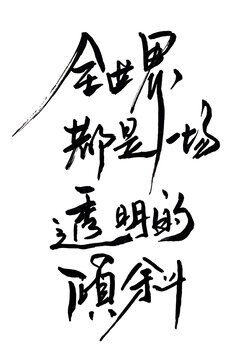 全世界
都是一场
透明的
倾斜